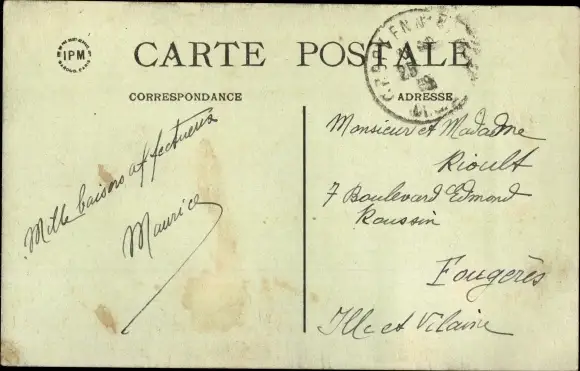 IPM
CARTE POSTALE
CORRESPONDANCE
ADRESSE
Mille baisers affectueux
Maurice
Monsieur et Madame
Rioult
7 Boulevard Edmond
Roussin
Fougères
Ille et Vilaine